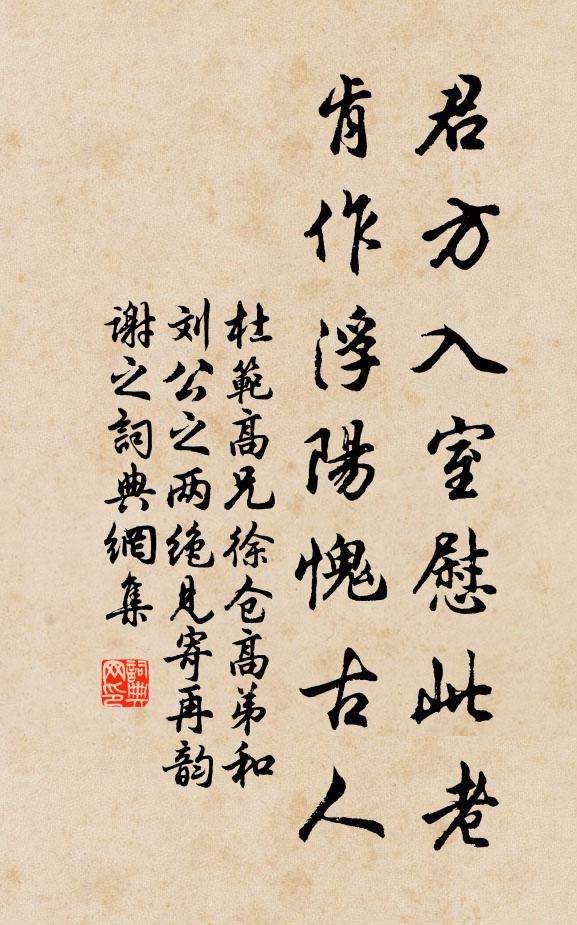 君方入室慰此老
肯作浮陽愧古人
杜範高兄徐仓高弟和
刘公之两绝见寄再韵
谢之詞典網集
詞典网印